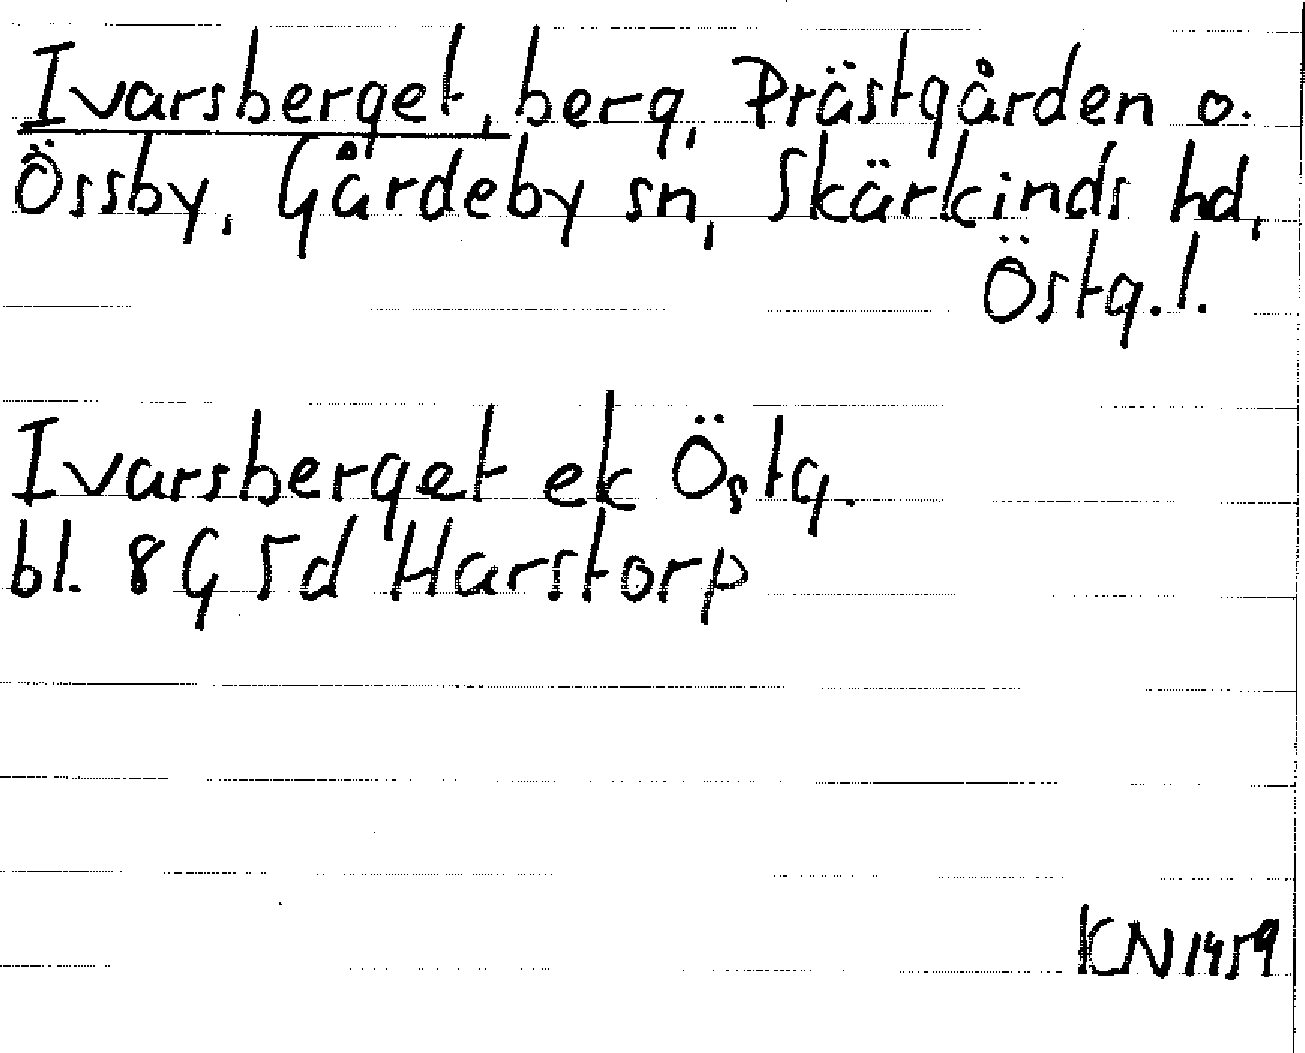 Ivarsberget, berg, Prästgården o.
Össby, Gårdeby sn, Skärkinds hd,
Östg. l.
Ivarsberget ek Östg.
bl. 8G 5d Harstorp
KN 1959